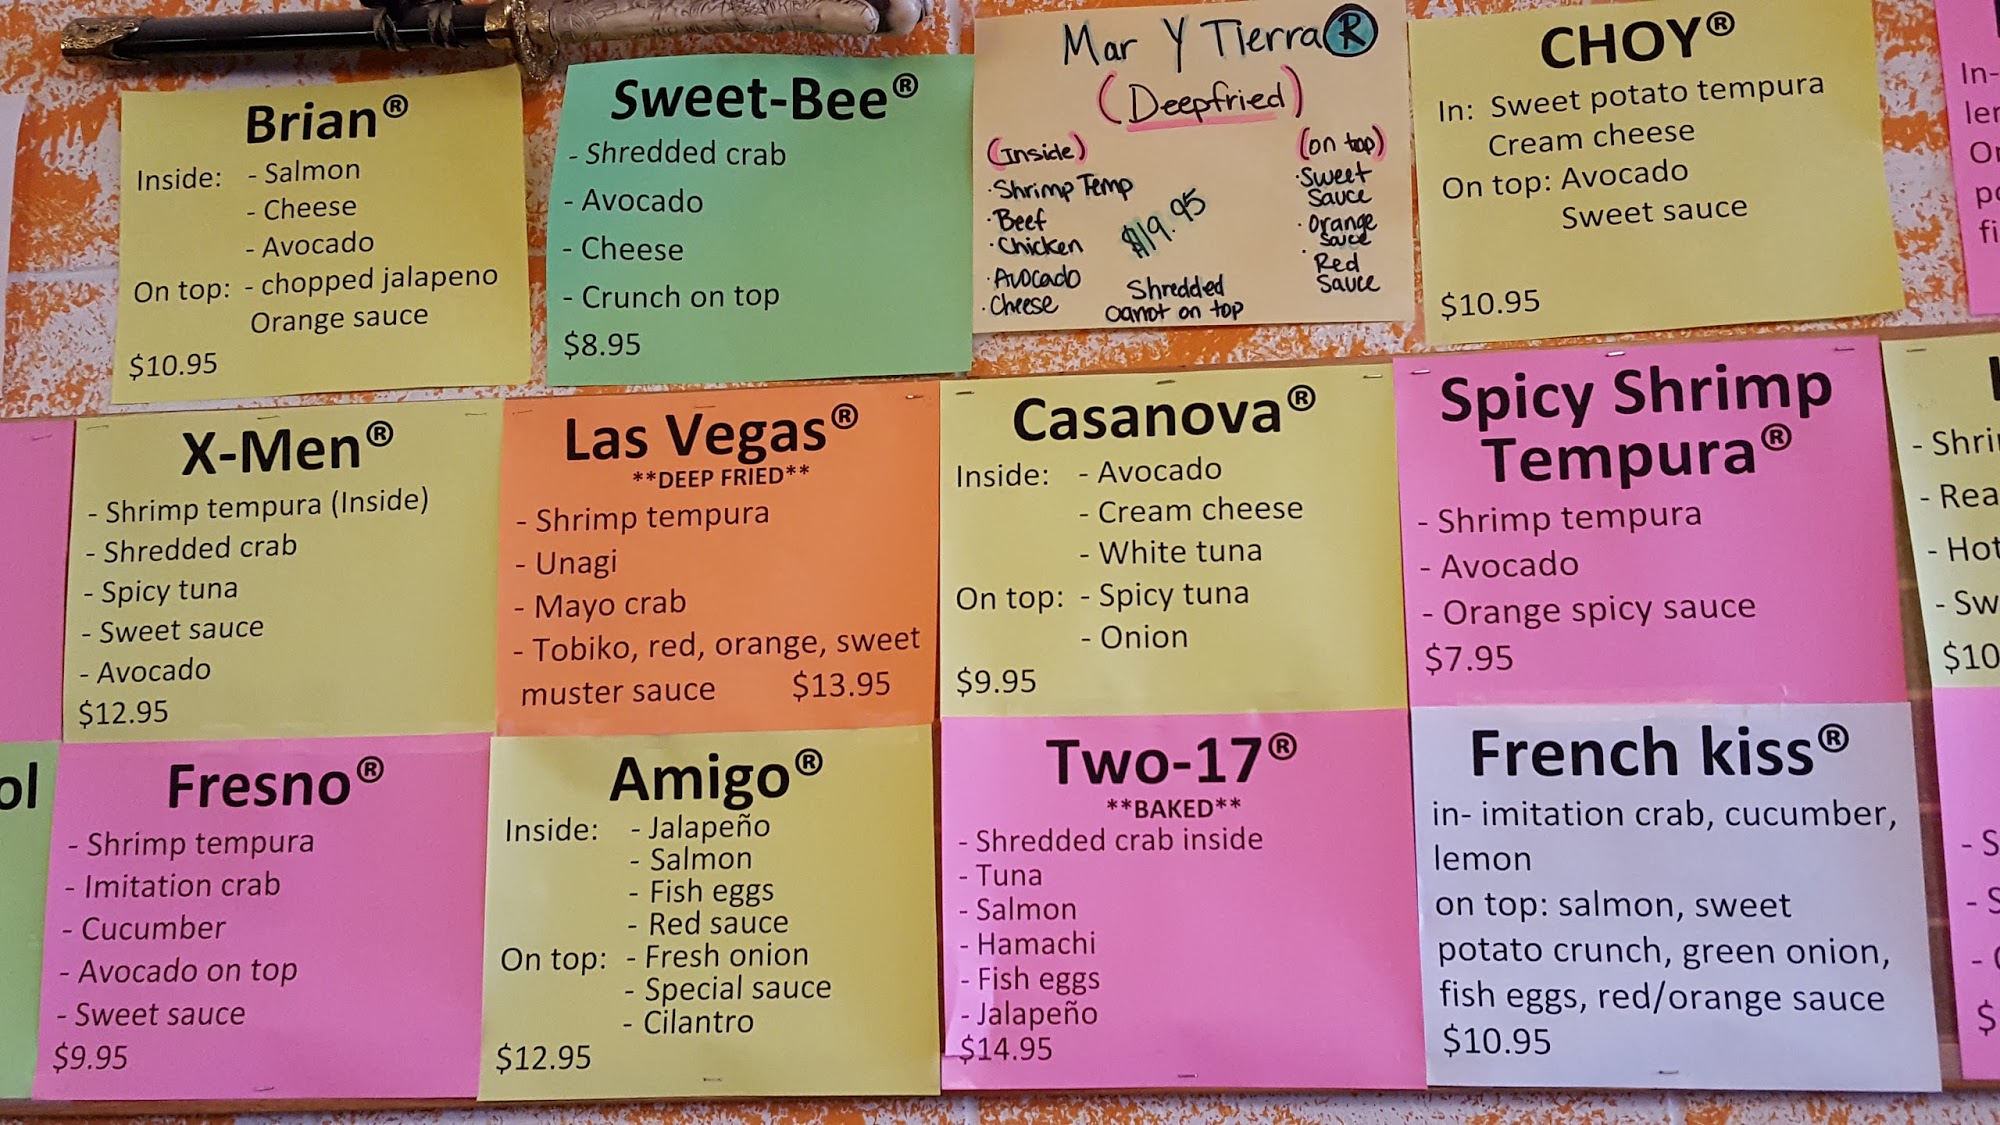 Brian®
Inside: - Salmon
- Cheese
- Avocado
On top: - chopped jalapeno
Orange sauce
$10.95
Sweet-Bee®
- Shredded crab
- Avocado
- Cheese
- Crunch on top
$8.95
Mar Y Tierra ®
(Deepfried)
(Inside)
· Shrimp Temp
· Beef
· Chicken
· Avocado
· Cheese
$19.95
Shredded
Carrot on top
(on top)
· Sweet
Sauce
· Orange
Sauce
· Red
Sauce
CHOY®
In: Sweet potato tempura
Cream cheese
On top: Avocado
Sweet sauce
$10.95
In-
X-Men®
- Shrimp tempura (Inside)
- Shredded crab
- Spicy tuna
- Sweet sauce
- Avocado
$12.95
Las Vegas®
**DEEP FRIED**
- Shrimp tempura
- Unagi
- Mayo crab
- Tobiko, red, orange, sweet
muster sauce $13.95
Casanova®
Inside: - Avocado
- Cream cheese
- White tuna
On top: - Spicy tuna
- Onion
$9.95
Spicy Shrimp
Tempura®
- Shrimp tempura
- Avocado
- Orange spicy sauce
$7.95
- Shri
- Rea
- Hot
- Sw
$10
ol
Fresno®
- Shrimp tempura
- Imitation crab
- Cucumber
- Avocado on top
- Sweet sauce
$9.95
Amigo®
Inside: - Jalapeño
- Salmon
- Fish eggs
- Red sauce
On top: - Fresh onion
- Special sauce
- Cilantro
$12.95
Two-17®
**BAKED**
- Shredded crab inside
- Tuna
- Salmon
- Hamachi
- Fish eggs
- Jalapeño
$14.95
French kiss®
in- imitation crab, cucumber,
lemon
on top: salmon, sweet
potato crunch, green onion,
fish eggs, red/orange sauce
$10.95
- S
- S
$